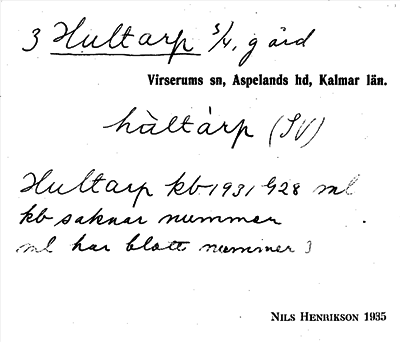 3 Hultarp 3/4, gård
Virserums sn, Aspelands hd, Kalmar län.
hùltárp (SV)
Hultarp kb 1931 1928 ml
kb saknar nummer
ml har blott nummer 3
NILS HENRIKSON 1935